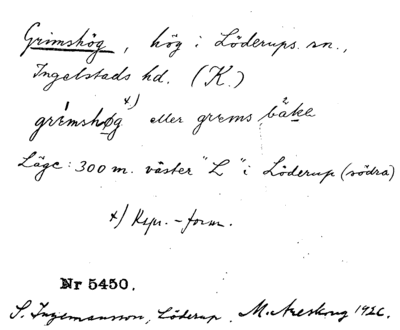 Grimshög, hög i Löderups sn.,
Ingelstads hd. (K.)
grimshøg x) eller grems bäke
Läge: 300 m. väster "L" i Löderup (södra)
x) Rspr.-form.
Nr 5450.
S. Ingemansson, Löderup. M. Areskog 1926.